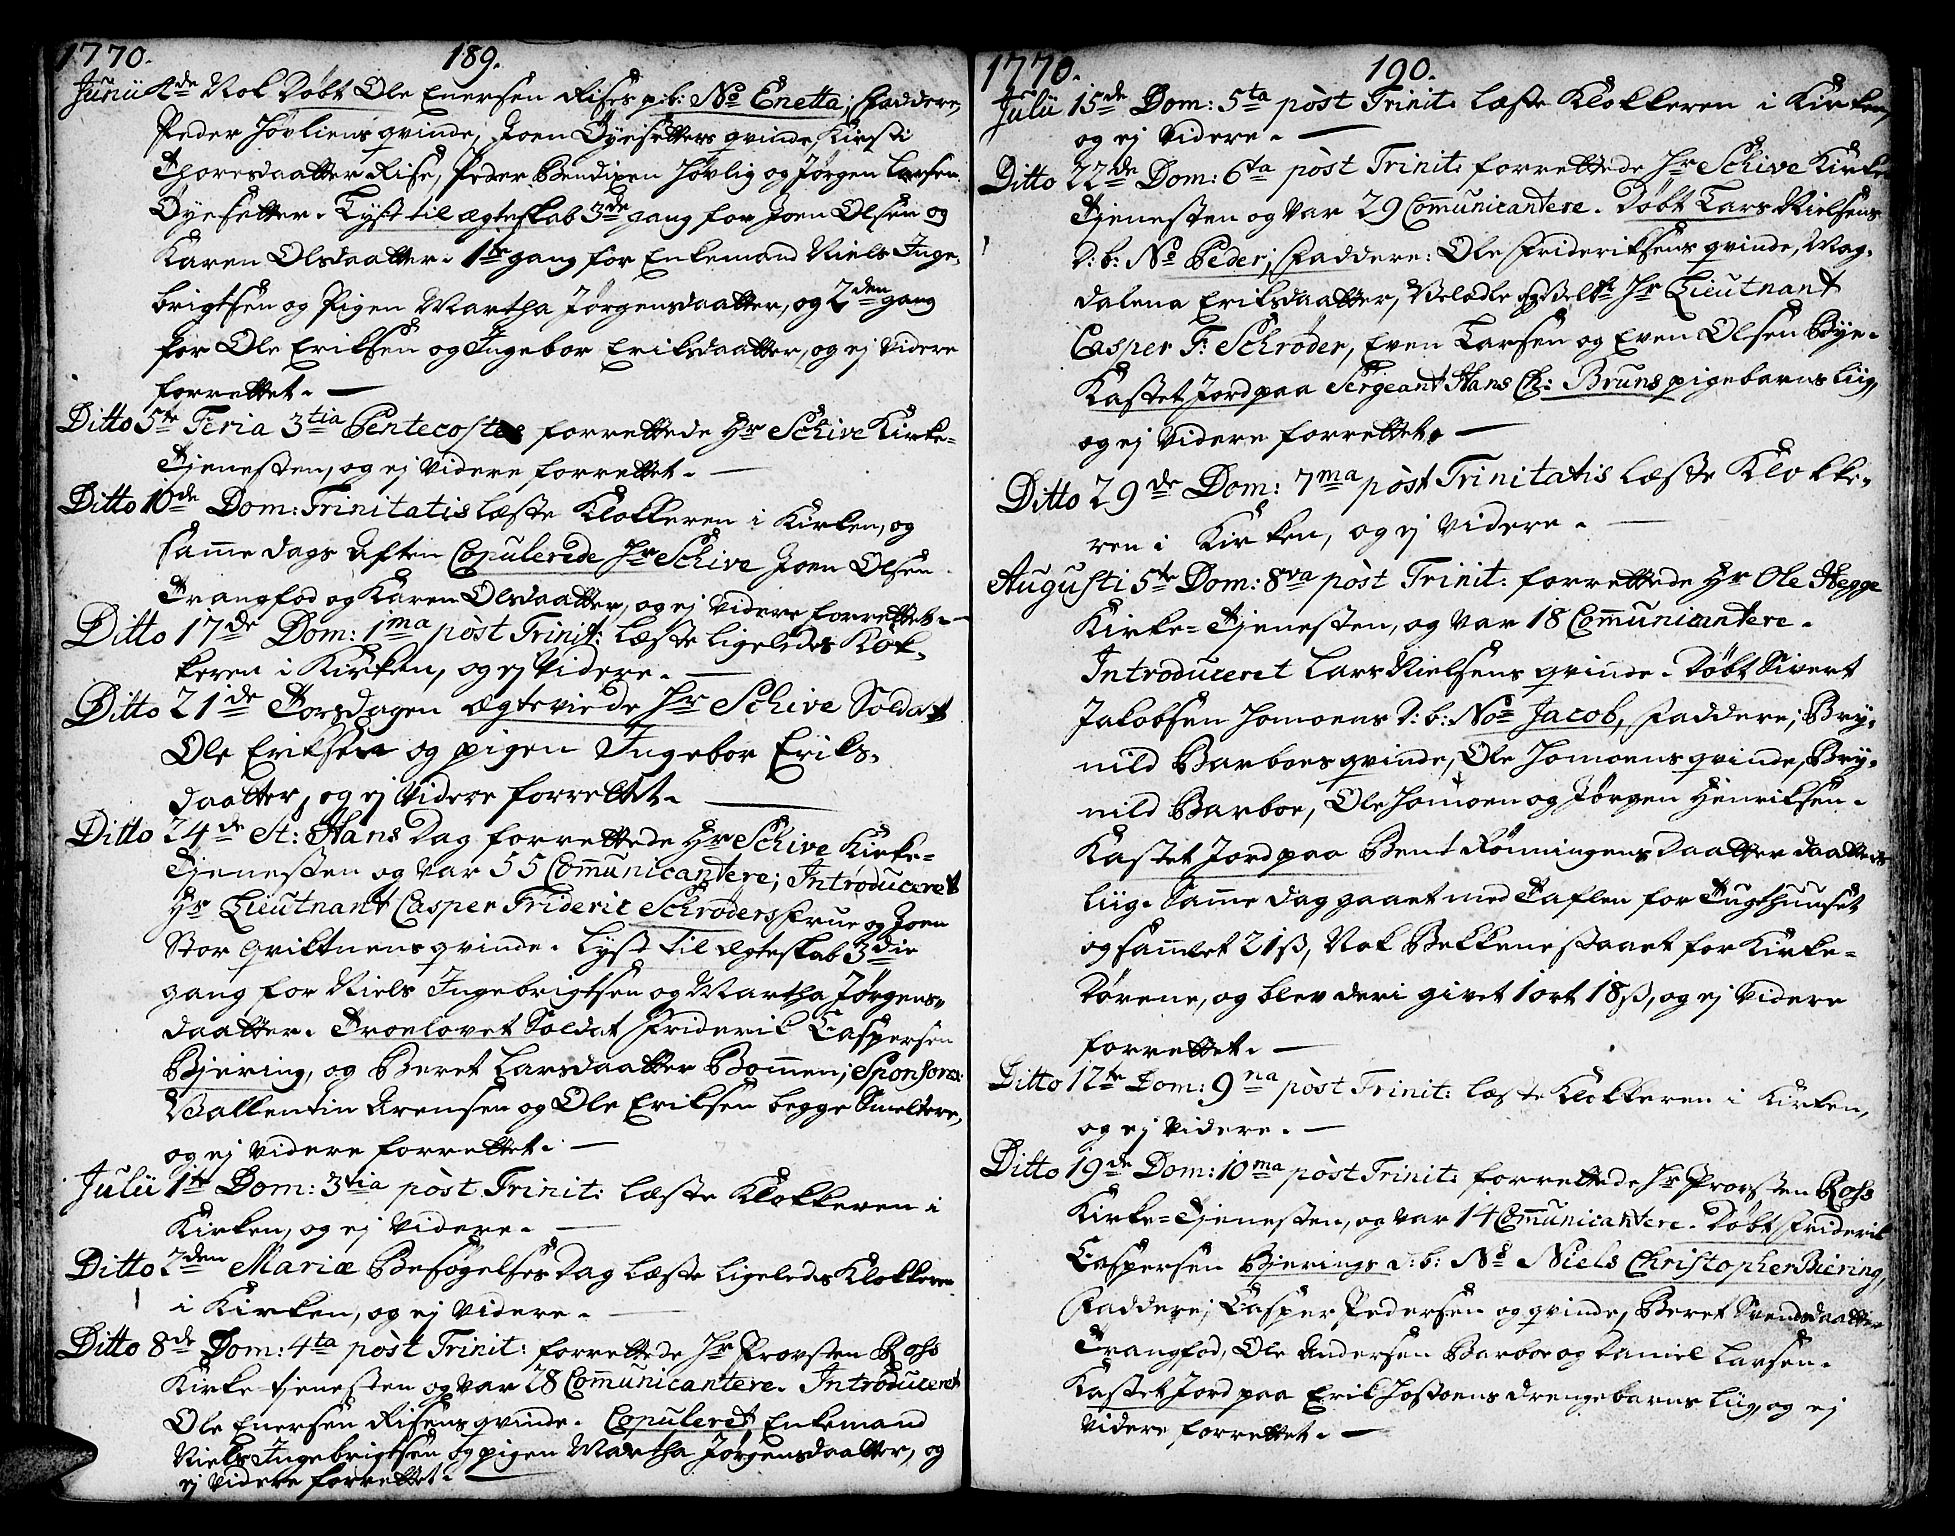 1770. 189.
Junii 4de Nok Døbt Ole Enersen Rises p:b: No Enetta; Faddere,
Peder Høvliens qvinde, Joen Øyesetters qvinde, Kirsti
Thoresdaatter Rise, Peder Bendixen Høvlig og Jørgen Larsen
Øyesetter. Lyst til ægteskab 3de gang for Joen Olsen og
Karen Olsdaatter. 1te gang for Enkemand Niels Inge-
brigtsen og Pigen Martha Jørgensdaatter, og 2den gang
for Ole Eriksen og Ingebor Eriksdaatter, og ej videre
forrettet. —
Ditto 5te Feria 3tia Pentecostes forrettede Hr Schive Kirke-
Tjenesten, og ej videre forrettet. —
Ditto 10de Dom: Trinitatis læste Klokkeren i Kirken, og
samme dags Aften Copulerede Hr Schive Joen Olsen
Trangfod og Karen Olsdaatter, og ej videre forrettet. —
Ditto 17de Dom: 1ma pòst Trinit: læste ligeledes Klok-
keren i Kirken, og ej videre. —
Ditto 21de Torsdagen ægteviede Hr Schive Soldat
Ole Eriksen og pigen Ingebor Eriks-
daatter, og ej videre forrettet. —
Ditto 24de St: Hans Dag forrettede Hr Schive Kirke-
Tjenesten og var 55 Communicantere; Introduceret
Hr Lieutnant Casper Frideric Schrøders Frue og Joen
Stor Qviktnens qvinde. Lyst til Ægteskab 3die
gang for Niels Ingebrigtsen og Martha Jørgens-
daatter. Troelovet Soldat Friderik Caspersen
Bjering, og Beret Larsdaatter Bommen; Sponsores:
Vallentin Arensen og Ole Eriksen begge Smeltere,
og ej videre forrettet. —
Julii 1te Dom: 3tia pòst Trinit: læste Klokkeren i
Kirken, og ej videre. —
Ditto 2den Mariæ Besøgelses Dag læste ligeledes Klokkeren
i Kirken, og ej videre. —
Ditto 8de Dom: 4ta pòst Trinit: forrettede Hr Provsten Rohs
Kirke-tjenesten og var 28 Communicantere. Introduceret
Ole Enersen Risens qvinde. Copuleret Enkemand
Niels Ingebrigtsen og pigen Martha Jørgensdaatter, og
ej videre forrettet. —
1770. 190.
Julii 15de Dom: 5ta pòst Trinit: læste Klokkeren i Kirken,
og ej videre. —
Ditto 22de Dom: 6ta pòst Trinit: forrettede Hr Schive Kirke
Tjenesten og var 29 Communicantere. Døbt Lars Nielsens
d:b: No Peder; Faddere: Ole Frideriksens qvinde, Mag-
dalena Eriksdaatter, Velædle og Hr Lieutnant
Casper F: Schrøder, Even Larsen og Even Olsen Bye.
Kastet Jord paa Sergeant Hans Ch: Bruns pigebarns Liig,
og ej videre forrettet. —
Ditto 29de Dom: 7ma pòst Trinitatis læste Klokke-
ren i Kirken, og ej videre. —
Augusti 5te Dom: 8va pòst Trinit: forrettede Hr Ole Hegge
Kirke-Tjenesten, og var 18 Communicantere.
Introduceret Lars Nielsens qvinde. Døbt Sivert
Jakobsen Homoens d:b: No Jacob, Faddere; Bry-
nild Barboes qvinde, Ole Homoens qvinde, Bry-
nild Barboe, Ole Homoen og Jørgen Henriksen.
Kastet Jord paa Bent Rønningens Daatter daatters
Liig. Samme dag gaaet med Taflen for Tugthuuset
og samlet 21 ß, Nok Bekkene staaet for Kirke-
Dørene, og blev deri givet 1 ort 18 ß, og ej videre
forrettet. —
Ditto 12te Dom: 9na pòst Trinit: læste Klokkeren i Kirken,
og ej videre. —
Ditto 19de Dom: 10ma pòst Trinit: forrettede Hr Provsten Rohs
Kirke-Tjenesten, og var 14 Communicantere. Døbt Friderik
Caspersen Bjerings d:b: No Niels Christopher Biering,
Faddere; Casper Pedersen og qvinde, Beret Svendsdaatter
Trangfod, Ole Andersen Barboe og Daniel Larsen.
Kastet Jord paa Erik Hostoens drengebarns Liig, og ej
videre forrettet. —